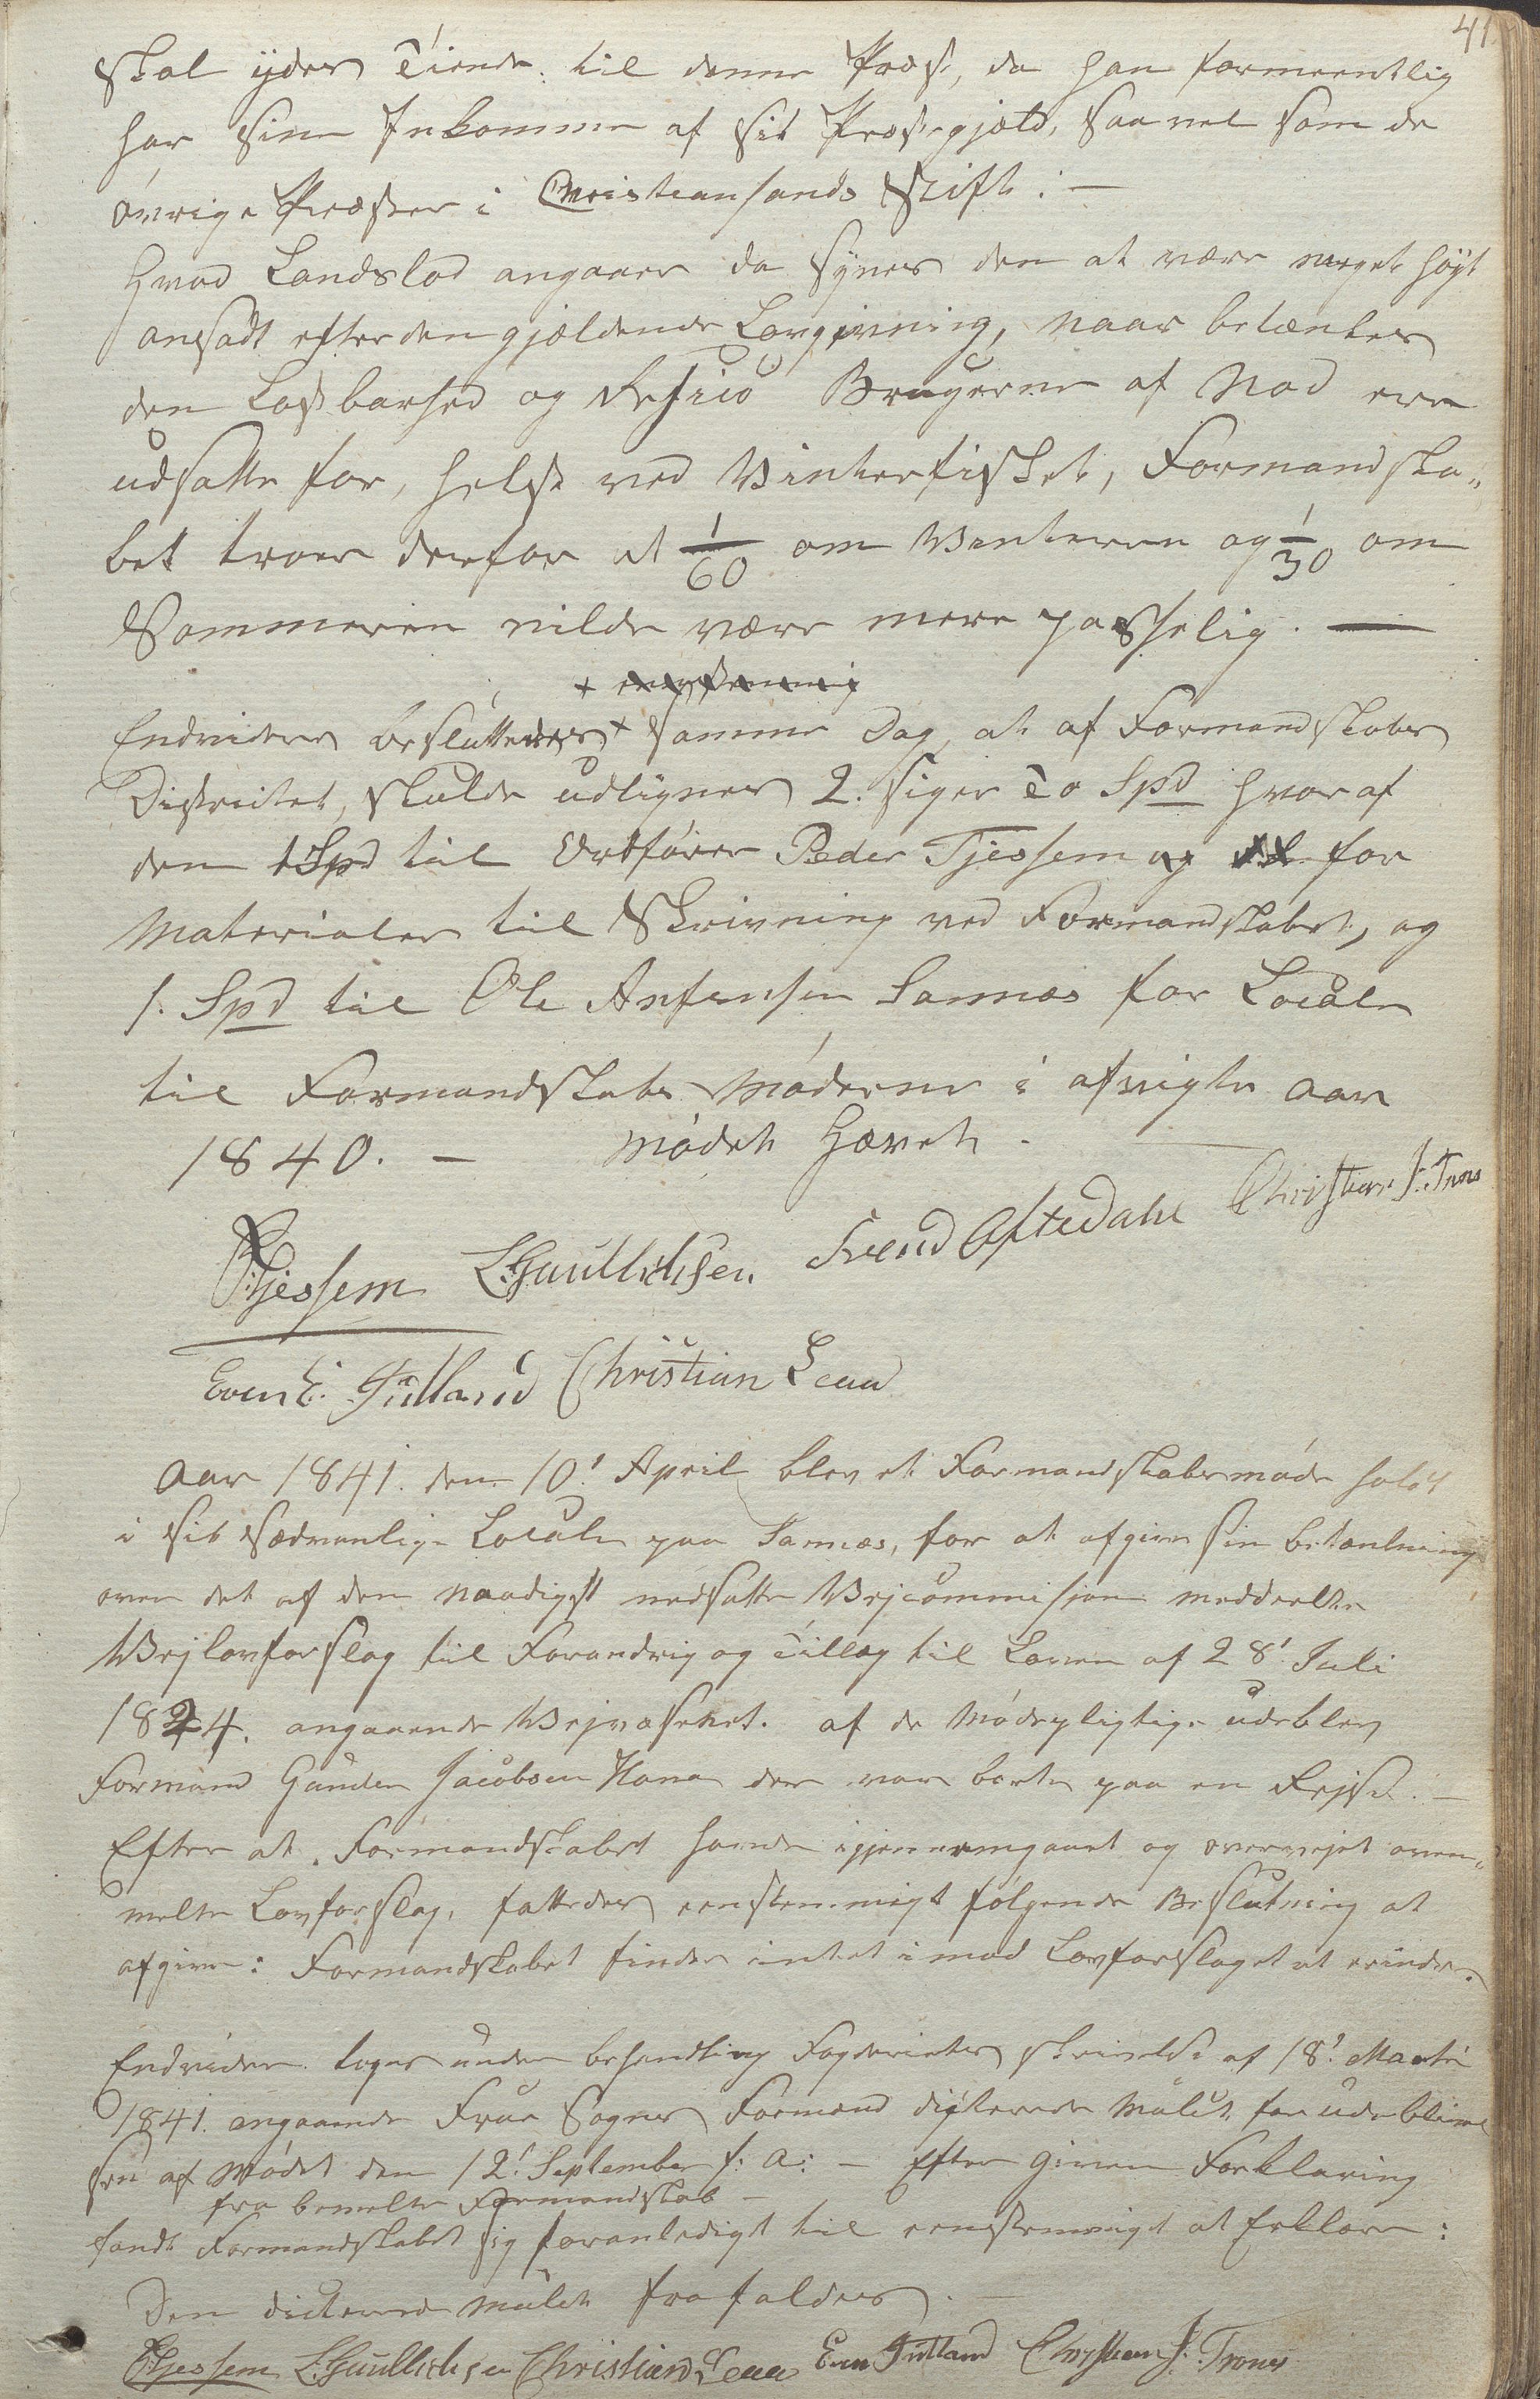 41
skal ydes Tiende til denne Præst, da han formeentlig
har sine Inkomme af sit Præstegjæld, saavel som de
øvrige Præster i Christiansands Stift. —
Hvad Landslod angaaer da synes den at være meget høyt
ansadt efter den gjældende Lovgivning, naar betænkes
den Kostbarhed og Resico Brugerne af Nod ere
udsatte for, helst ved Vinterfisket, Formandska„
bet troer derfor at 1/60 om Venteren og 1/30 om
Sommeren vilde være mere passelig. —
Endvidere besluttedes + samme Dag, at af Formandskabs
Districtet, skulde udlignes 2. siger To Spd hvoraf
den 1 Spd til Ordfører Peder Tjessem og for
Materialer til Skrivning ved Formandskabet, og
1. Spd til Ole Anfensen Sannes for Locale
til Formandskabs Møderne i afvigte Aar
1840. — Mødet Hævet.
PTjessem L. Gudlichsen Svend Aftedahl Christian J. Trones
Even E. Jutland Christian Lean
Aar 1841. den 10' April blev et Formandskabsmøde holdt
i sit sædvanlige Locale paa Sannes, for at afgive sin betænkning
over det af den naadigst nedsatte Vejcommission meddeelte
Vejlovforslag til Forandring og Tillæg til Loven af 28' Juli
1824. angaaende Vejvæsenet. af de Mødepligtige udeblev
Formand Gunder Jacobsen Hana der var borte paa en Rejse. —
Efter at Formandskabet havde igjennemgaaet og overvejet oven„
melte Lovforslag, fattedes eenstemmigt følgende Beslutning at
afgive: Formandskabet finder intet imod Lovforslaget at erindre.
Endvidere toges under behandling Fogderiets skrivelse af 18' Marti
1841. angaaende Frue Sogns Formænd dicterede Mulct for udeblivel
sen af Mødet den 12' September f: A: — Efter given Forklaring
fra bemelte Formandskab —
fandt Formandskabet sig foranlediget til eenstemmigt at Erklære:
Den dicterede Mulct frafaldes. —
PTjessem L. Gudlichsen Christian Lean Even Jutland Christian J. Trones